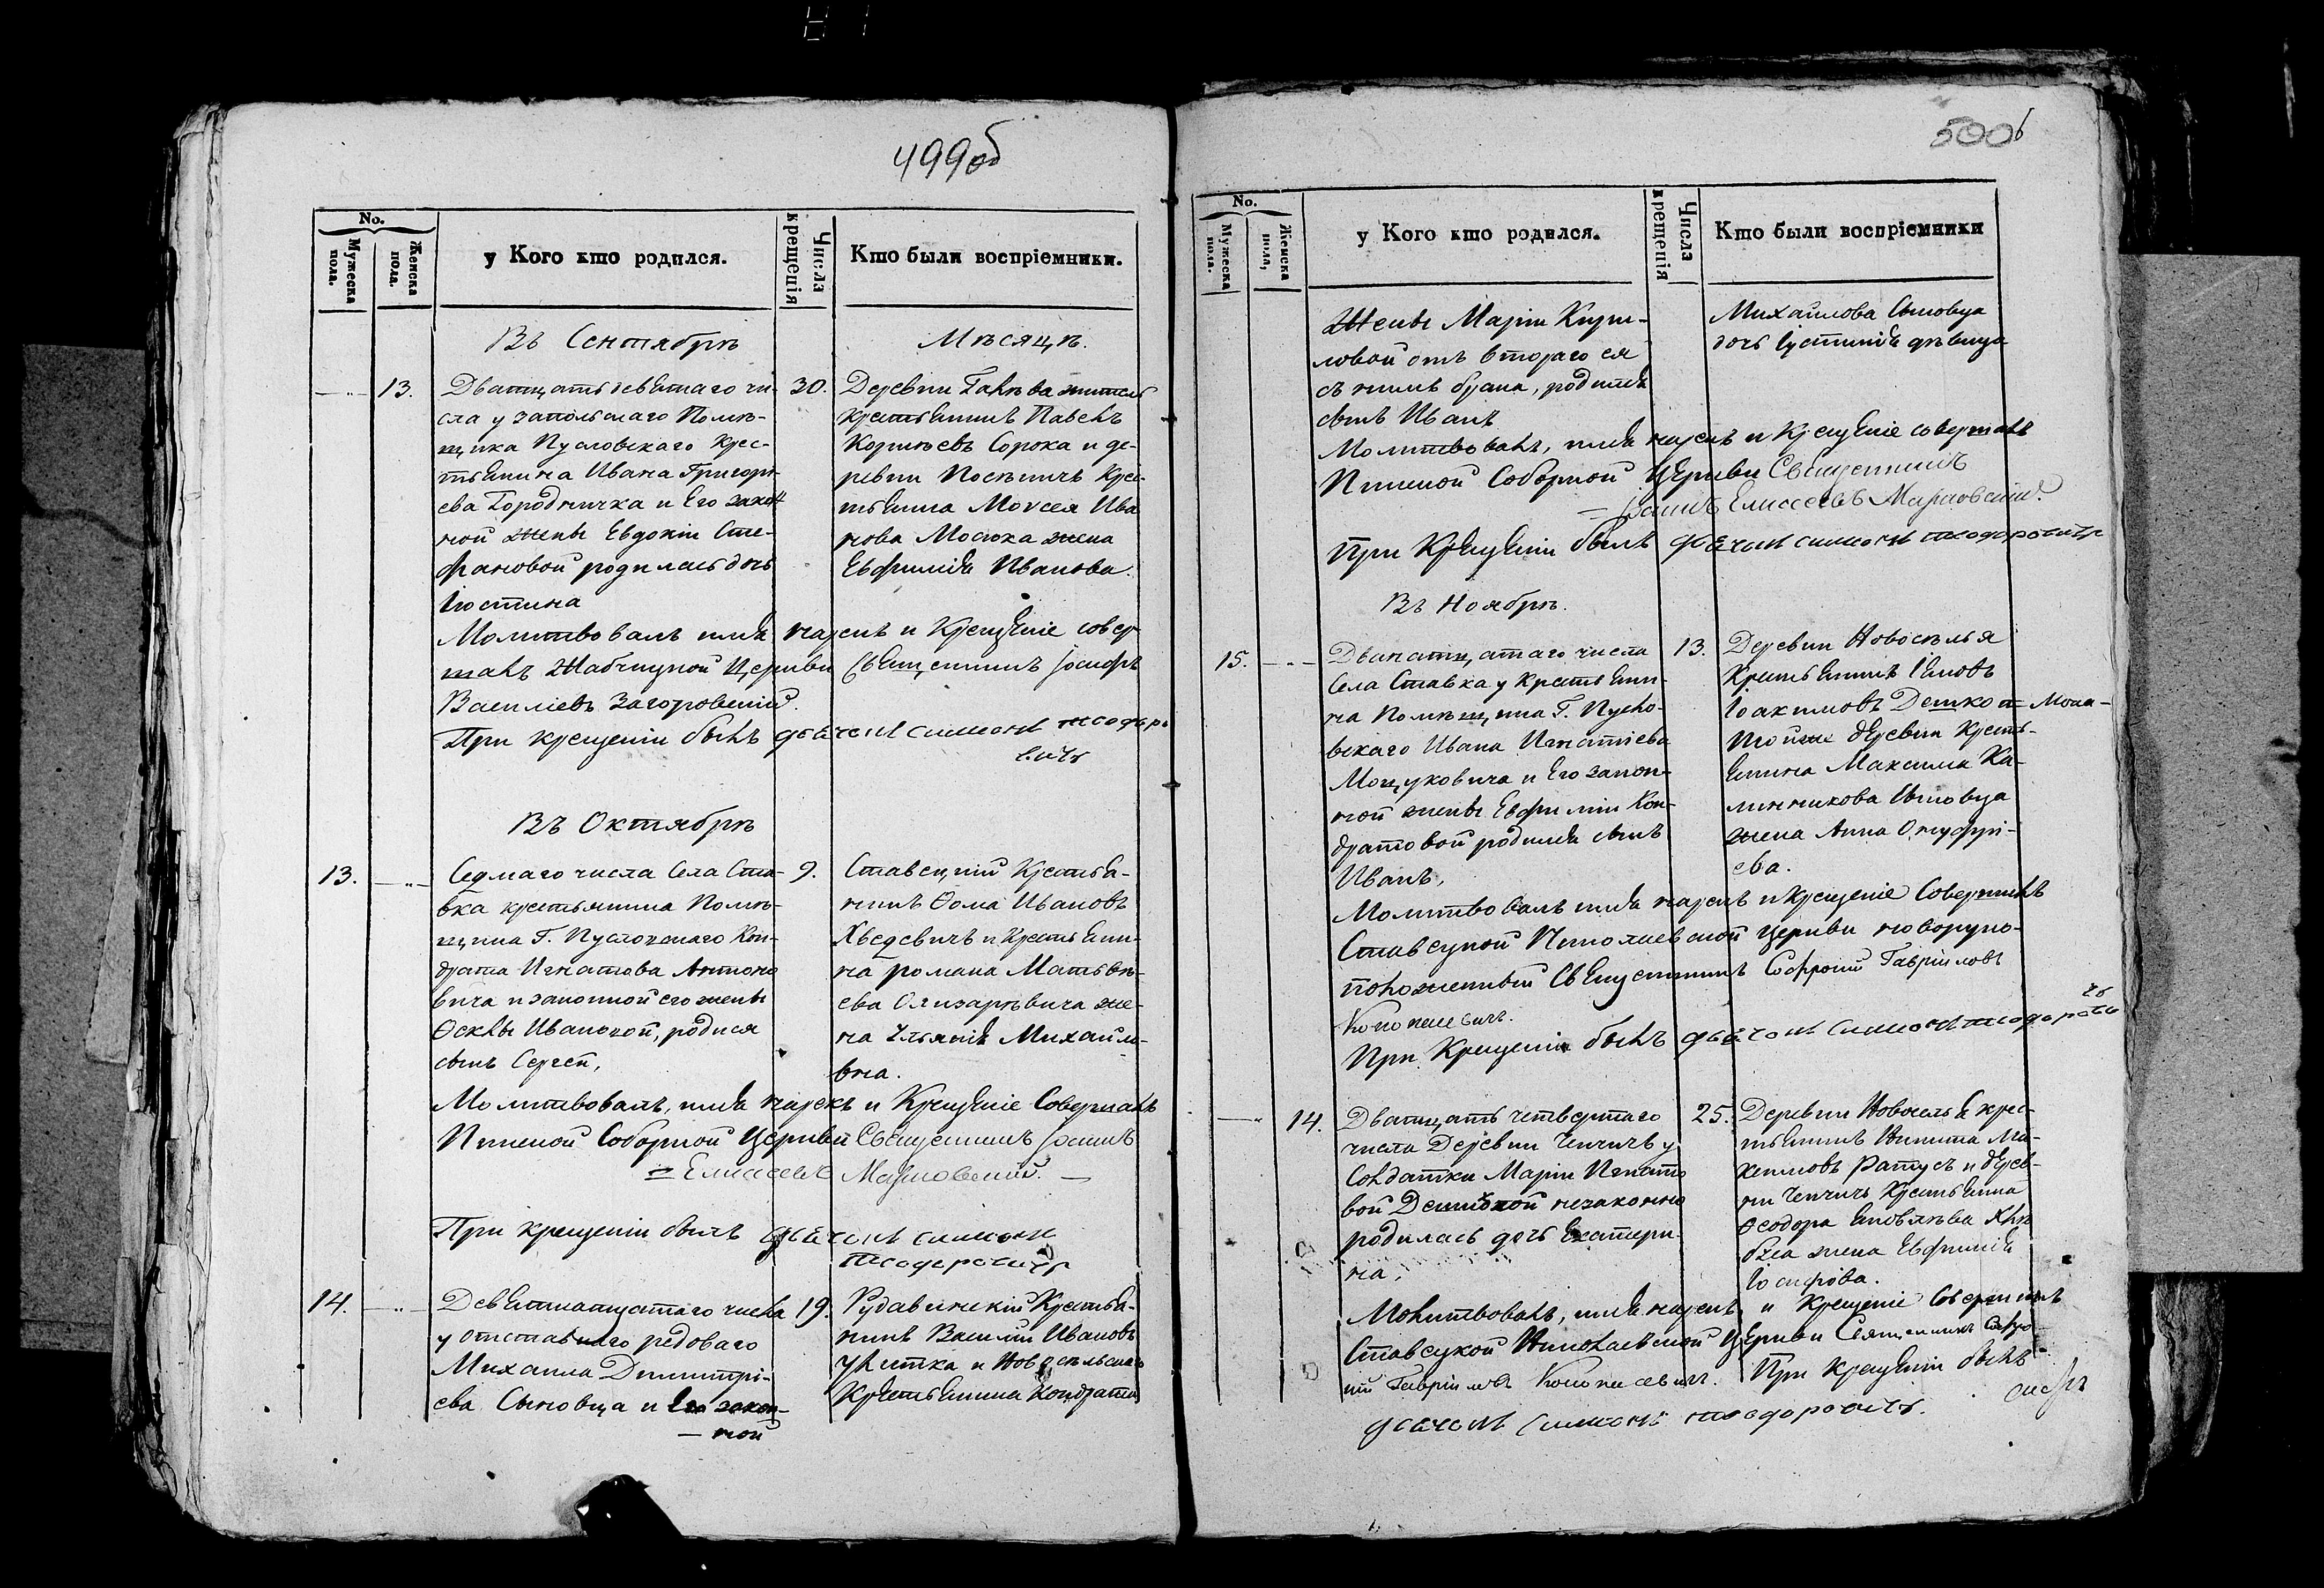 499об
No.
Мужеска пола.
Женска пола.
у Кого кто родился.
Числа крещенія
Кто были воспріемники.
Въ Сентябрѣ
Мѣсяцѣ.
13.
Дватцать девятаго чи-
сла у запольскаго Помѣ-
щика Пусловскаго Крес-
тьянина Ивана Григорь-
ева Городничка и Его закон
ной жены Евдокіи Сте-
фановой родилась дочь
Іюстина
30.
Деревни жител
крестьянинъ Павелъ
Корнѣевъ Сорока и де-
ревни Поснничъ Крес-
тьянина Моvсея Ива
нова Мосюка жена
Евфимія Иванова.
Молитвовалъ имя нарекъ и Крещеніе совер
шалъ Жабчицкой Церкви Священникъ Іосифъ
Василіевъ Загоровскій.
При крещеніи былъ дьячокъ симеонъ теодоро
вичъ
Въ Октябрѣ
13.
Седмаго числа Села Ста-
вка крестьянина Помѣ-
щика Г. Пусловскаго Кон-
драта Игнатова Антоно
вича и законной его жены
Ѳеклы Ивановой, родися
сынъ Сергей,
9.
Ставецкій Крестья-
нинъ Ѳома Ивановъ
Хведевичъ и Крестьяни-
на романа Матвѣ-
ева Олизарѣвича же-
на Ульянія Михайло-
вна.
Молитвовалъ, имя нарекъ и Крещеніе Совершалъ
Пинской Соборной Церкви Священникъ Іоаннъ
Елисеевъ Марновскій.
При крещеніи былъ дьячокъ симеонъ
теодоровичъ
14.
Девятнатцатаго числа
у отставнаго редоваго
Михаила Димитрі-
ева Сыновца и Его закон-
ной
19.
Рудавинскій Крестья-
нинъ Василій Ивановъ
Улитка и Новосѣльскаго
Крестьянина Кондрата
500
No.
Мужеска пола.
Женска пола,
у Кого кто родился.
Числа крещенія
Кто были воспріемники
Жены Маріи Кири-
ловой отъ втораго ея
съ нимъ брака, родился
сынъ Иванъ
Михайлова Сыновца
дочь Іустинія дѣвица
Молитвовалъ, имя нарекъ и Крещеніе совершалъ
Пинской Соборной Церкви Священникъ
Іоаннъ Елисеевъ Марновскій
При Крещеніи былъ дьячокъ симеонъ теодоровичъ
Въ Ноябрѣ.
15.
Дванатцатаго числа
Села Ставка у крестьяни-
на Помѣщика Г. Пусло-
вскаго Ивана Игнатіева
Мощуковича и Его закон-
ной жены Евфиміи Кон-
дратовой родился сынъ
Иванъ,
13.
Деревни Новосѣлья
Крестьянинъ Іаковъ
Іоакимовъ
Тойже деревни Кресть-
янина Максима Ка-
линникова Сыновца
жена Анна Онуфрі-
ева.
Молитвовалъ имя нарекъ и крещеніе Совершилъ
Ставецкой Николаевской Церкви новоруко-
положенный Священникъ Софроній Гавріиловъ
Кононасевичъ.
При Крещеніи былъ дьячокъ симеонъ теодорови
чъ
14.
Дватцать четвертаго
числа Деревни Чепчичъ у
Солдатки Маріи Игнато
вой незаконно
родилась дочь Екатери-
на,
25.
Деревни Новоселья крес-
тьянинъ Никита Ми-
хеиловъ Ратусъ и дерев-
ни Чепчичъ Крестьянина
Ѳеодора Яковлѣва Хлѣ
бча жена Евфимія
Іосифова.
Молитвовалъ, имя нарекъ и Крещеніе Совершилъ
Ставецкой Николаевской Церкви Священникъ Софро-
ній Гавріиловъ Кононасевичъ. При Крещеніи былъ
дьячокъ Симеонъ теодоровичъ.